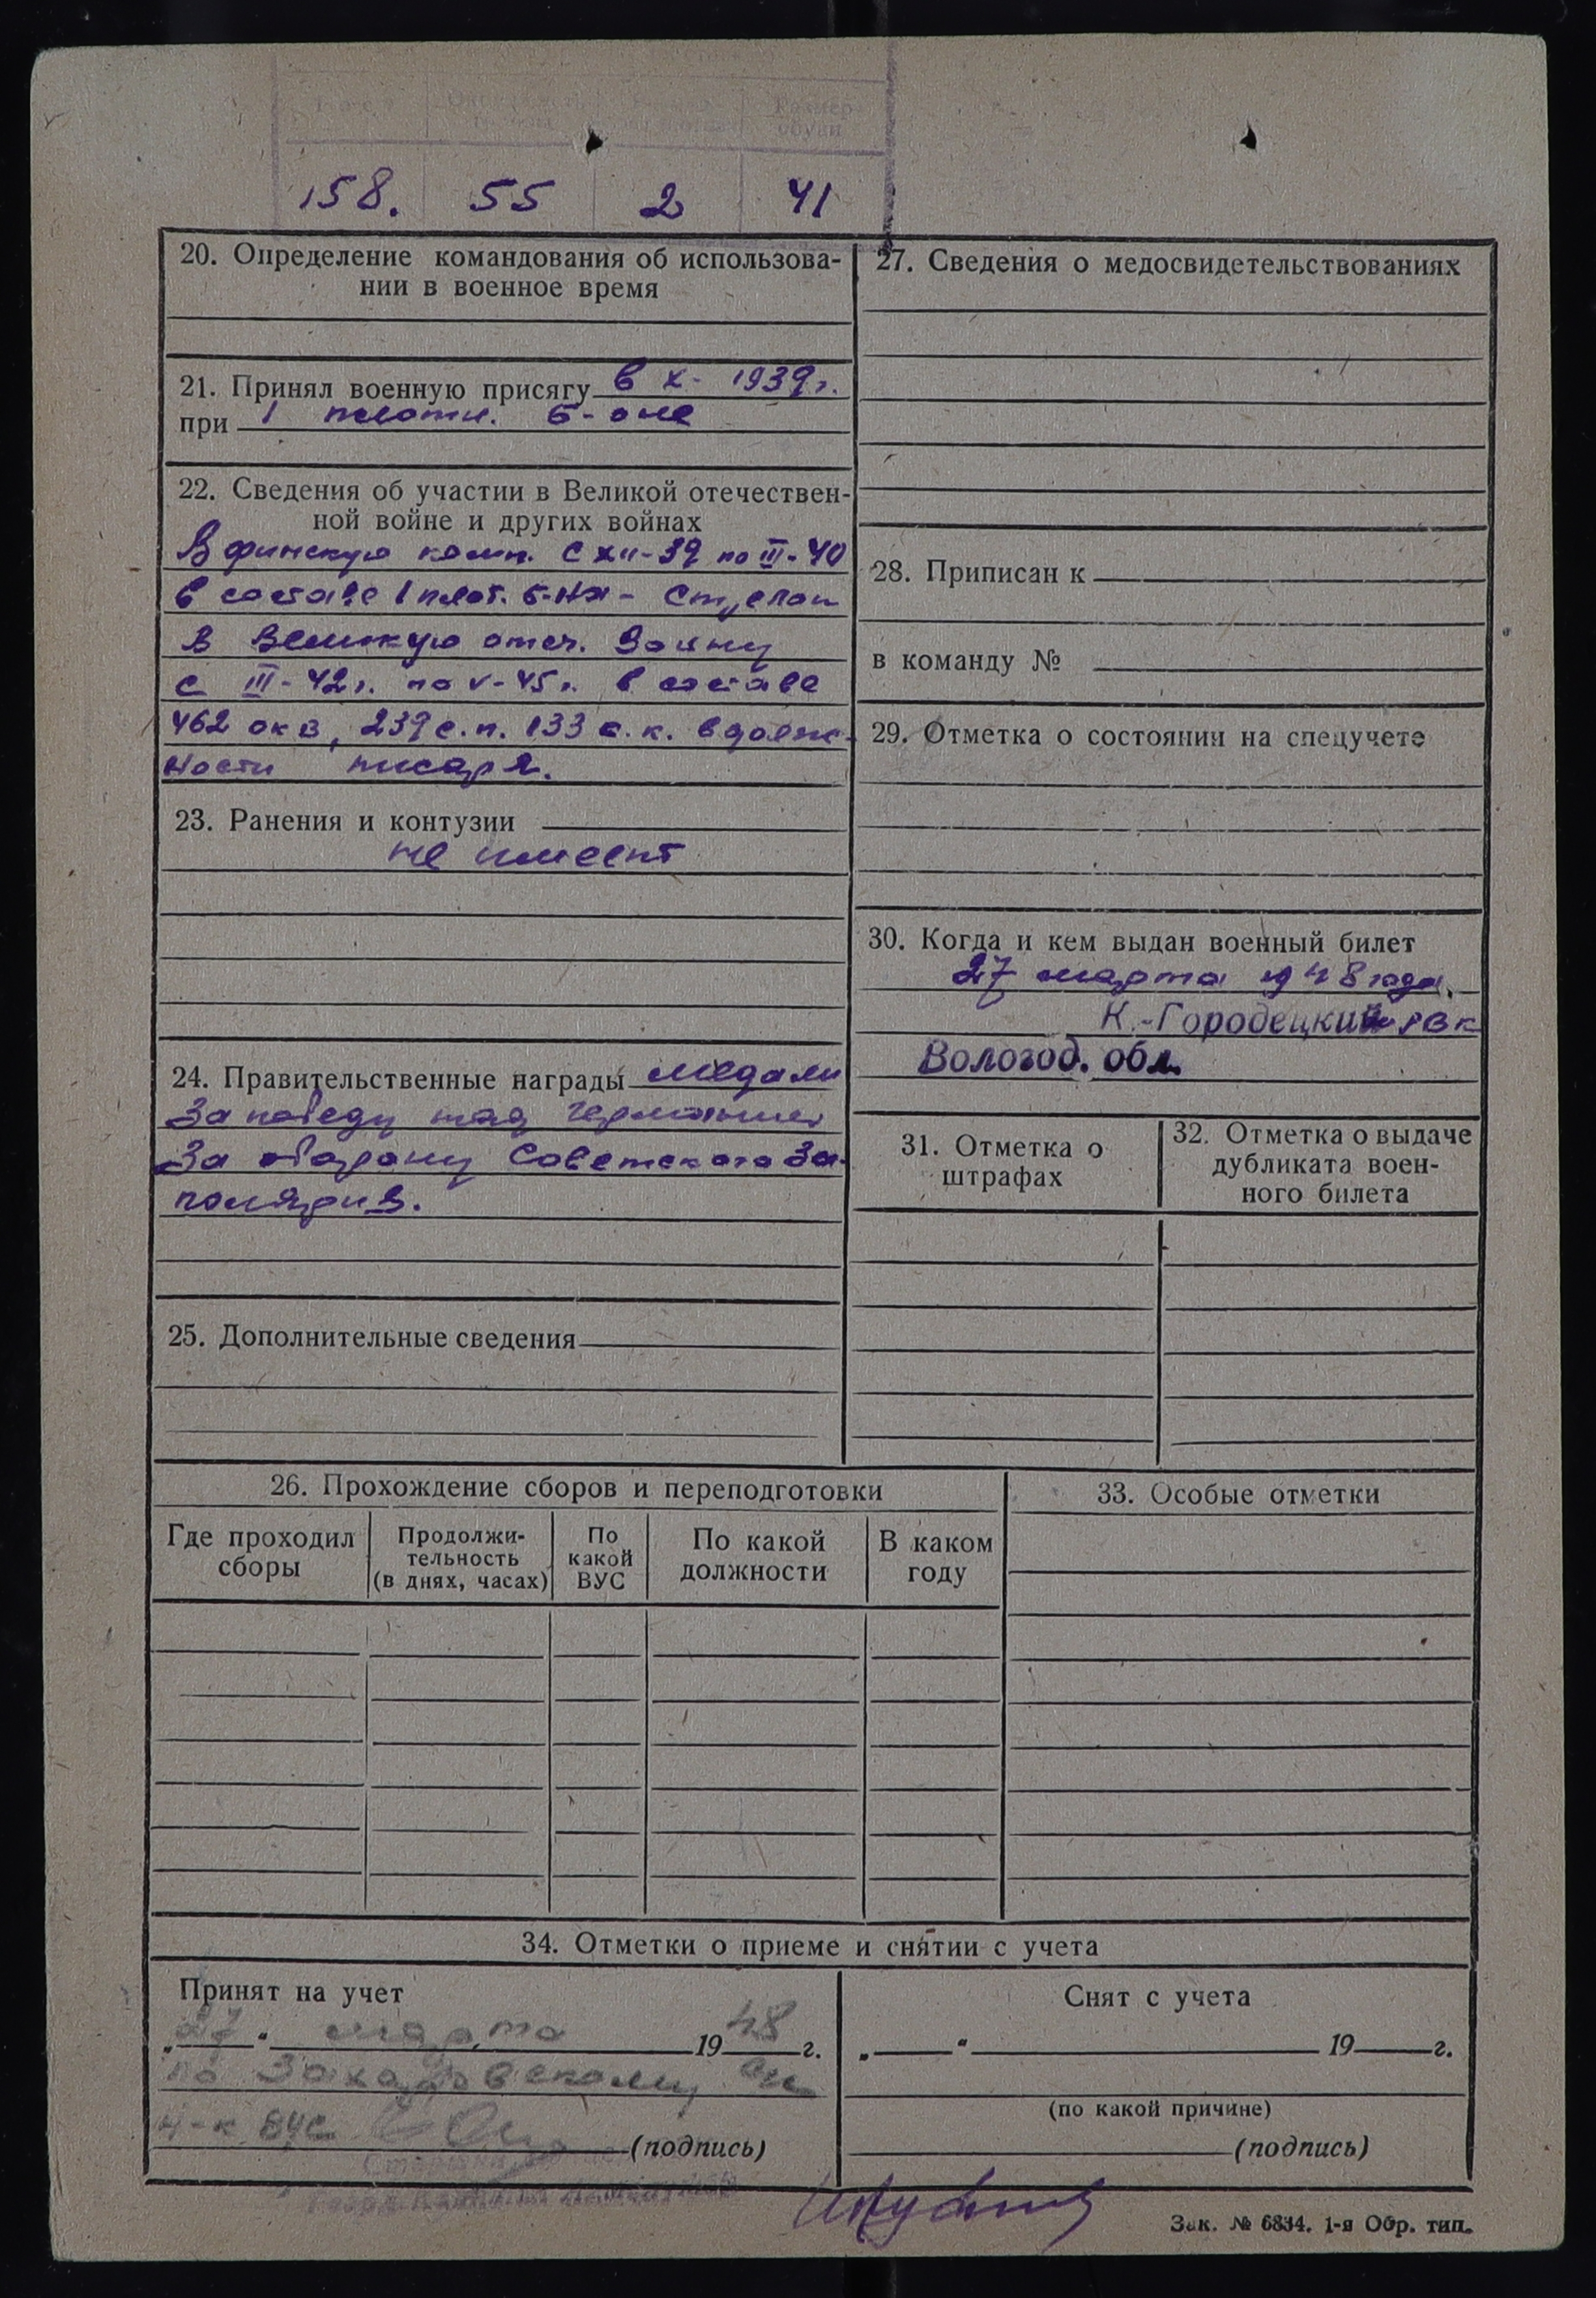 Размер
обуви
158. 55 2 41
20. Определение командования об использова-
нии в военное время
21. Принял военную присягу в X- 1939г.
при 1 плотн. б-оне
22. Сведения об участии в Великой отечествен-
ной войне и других войнах
В финскую камп. с XII-39 по III-40
в составе 1 плот. б-на -
В Великую отеч. войну
с III-42г. по V-45г. в составе
462 окв, 239 с.п. 133 с.к. в долж-
ности писаря.
23. Ранения и контузии
не имеет
24. Правительственные награды медали
За победу над Германией
За оборону Советского За-
полярия.
25. Дополнительные сведения
26. Прохождение сборов и переподготовки
Где проходил
сборы
Продолжи-
тельность
(в днях, часах)
По
какой
ВУС
По какой
должности
В каком
году
27. Сведения о медосвидетельствованиях
28. Приписан к
в команду №
29. Отметка о состоянии на спецучете
30. Когда и кем выдан военный билет
27 марта 1948 года.
К.-Городецкий рвк
Вологод. обл.
31. Отметка о
штрафах
32. Отметка о выдаче
дубликата воен-
ного билета
33. Особые отметки
34. Отметки о приеме и снятии с учета
Принят на учет
„27“ марта 1948 г.
по Захаровскому
н-к ВУС (подпись)
Снят с учета
„ “ 19 г.
(по какой причине)
(подпись)
Зак. № 6834. 1-я Обр. тип.